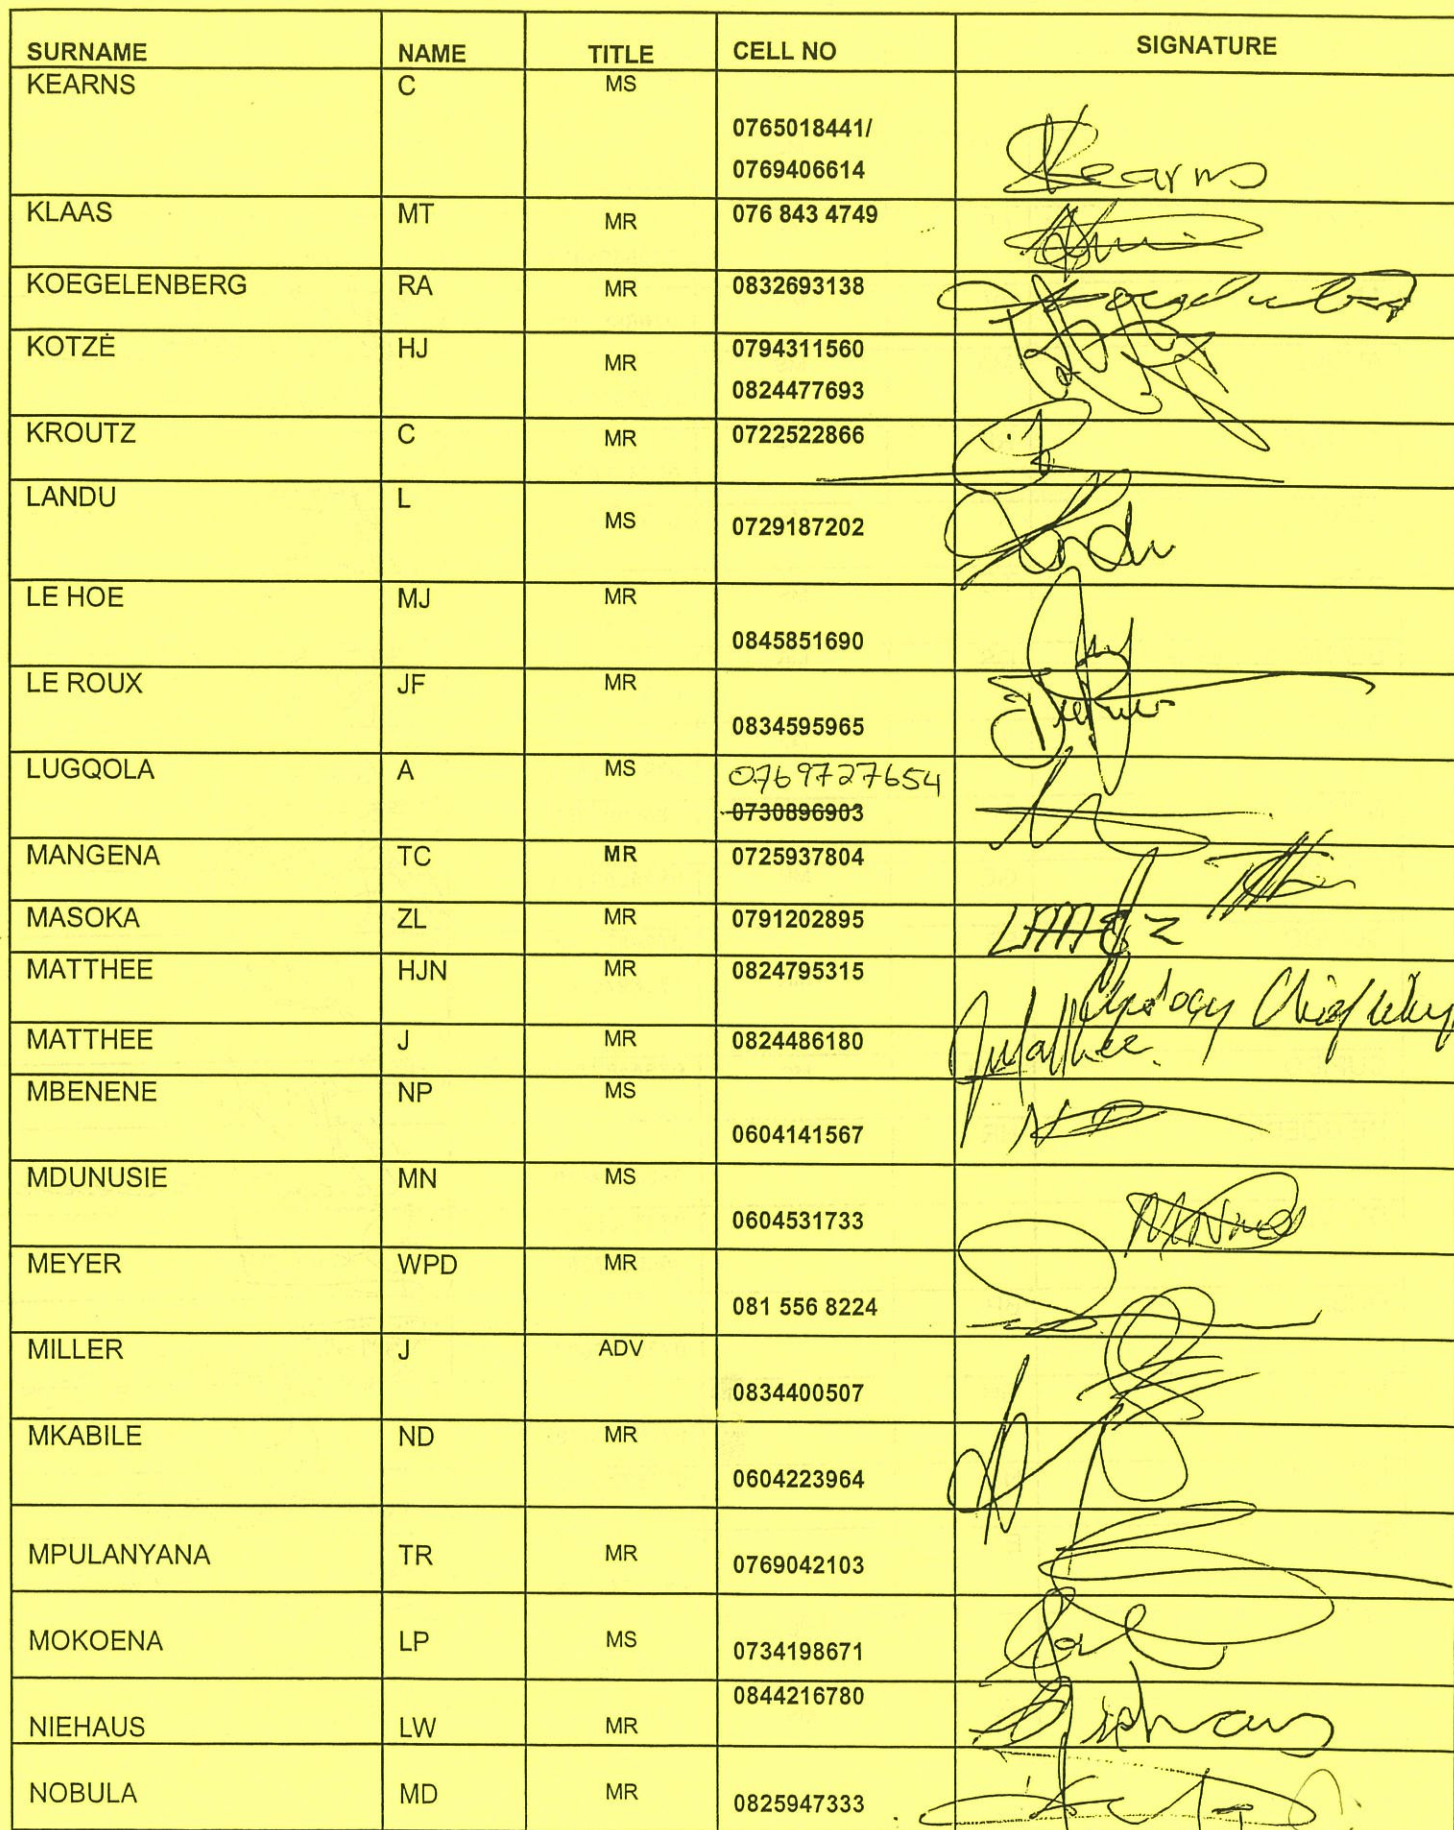 SURNAME NAME TITLE CELL NO SIGNATURE
KEARNS C MS
0765018441/
0769406614 Kearns
KLAAS MT MR 076 843 4749
KOEGELENBERG RA MR 0832693138
KOTZÈ HJ MR 0794311560
0824477693
KROUTZ C MR 0722522866
LANDU L MS 0729187202 Landu
LE HOE MJ MR
0845851690
LE ROUX JF MR
0834595965
LUGQOLA A MS 0769727654
0730896903
MANGENA TC MR 0725937804
MASOKA ZL MR 0791202895
MATTHEE HJN MR 0824795315 Apology Chief Whip
MATTHEE J MR 0824486180 JMatthee
MBENENE NP MS
0604141567
MDUNUSIE MN MS
0604531733
MEYER WPD MR
081 556 8224
MILLER J ADV
0834400507
MKABILE ND MR
0604223964
MPULANYANA TR MR 0769042103
MOKOENA LP MS 0734198671
0844216780
NIEHAUS LW MR Niehaus
NOBULA MD MR 0825947333